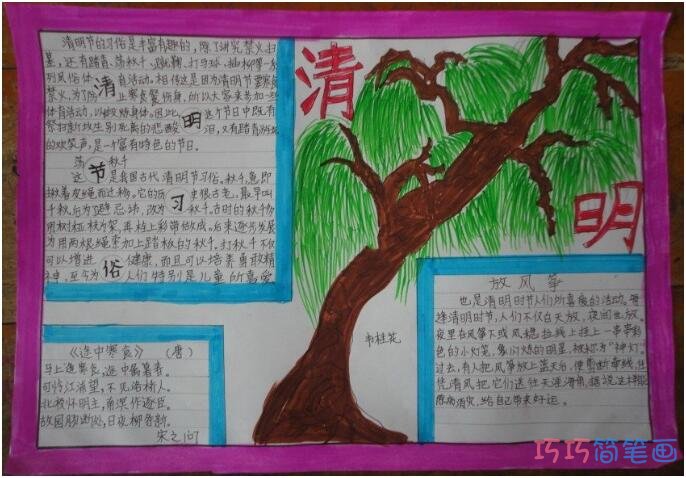 清明节的习俗是丰富有趣的,除了讲究禁火、扫
墓,还有踏青、荡秋千、蹴鞠、打马球、插柳等一系
列风俗体育活动。相传这是因为清明节要寒食
禁火,为了防止寒食冷餐伤身,所以大家来参加一些
体育活动,以锻炼身体。因此,这个节日中既有
祭扫新坟生别死离的悲酸泪,又有踏青游玩
的欢笑声,是一个富有特色的节日。
清
明
节
习
俗
荡秋千
这是我国古代清明节习俗。秋千,意即
揪着皮绳而迁移。它的历史很古老,最早叫
千秋,后为避忌讳,改为秋千。古时的秋千多
用树桠枝为架,再栓上彩带做成。后来逐步发展
为用两根绳索加上踏板的秋千。打秋千不仅
可以增进健康,而且可以培养勇敢精
神,至今为人们特别是儿童所喜爱
《途中寒食》(唐)
马上逢寒食,途中属暮春。
可怜江浦望,不见洛桥人。
北极怀明主,南溟作逐臣。
故园肠断处,日夜柳条新。
宋之问
清
明
韦桂花
放风筝
也是清明时节人们所喜爱的活动。每
逢清明时节,人们不仅白天放,夜间也放。
夜里在风筝下或风稳拉线上挂上一串串彩
色的小灯笼,象闪烁的明星,被称为“神灯”。
过去,有人把风筝放上蓝天后,便剪断牵线,任
凭清风把它们送往天涯海角,据说这样能
除病消灾,给自己带来好运。
巧巧简笔画